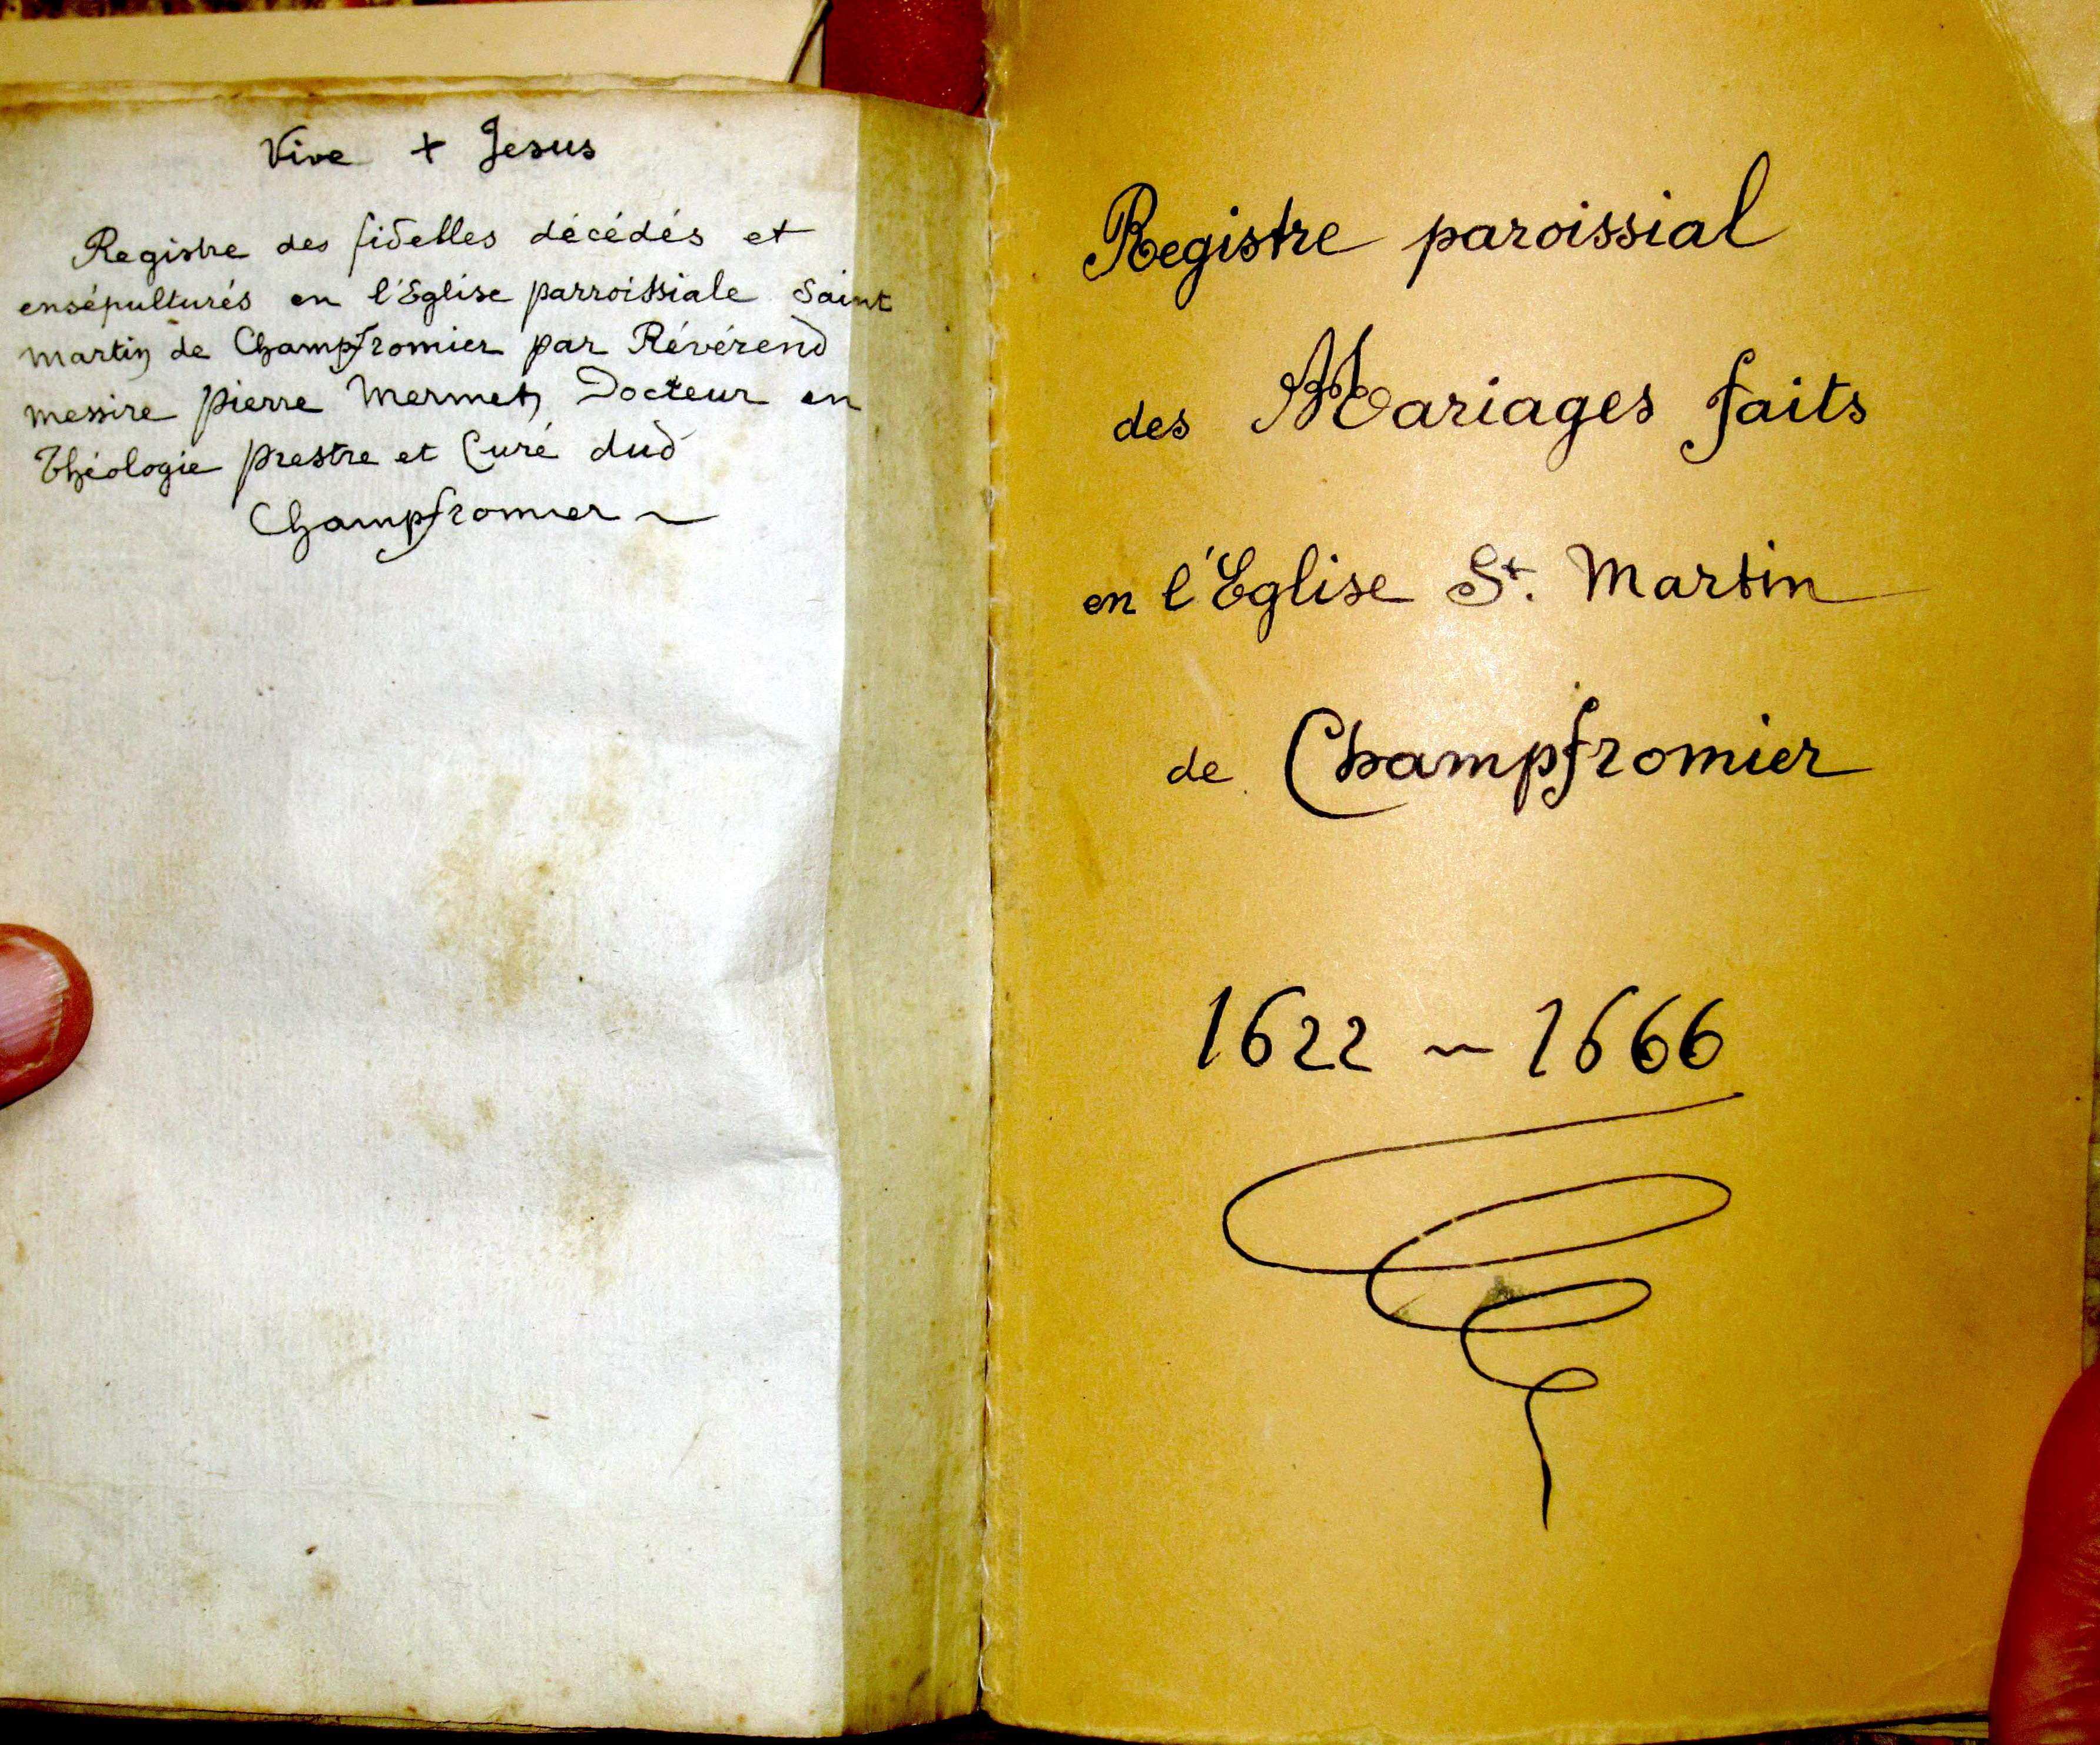 Vive + Jesus
Registre des fidelles décédés et
ensépulturés en l'Eglise parroissiale Saint
martin de Champfromier par Révérend
messire pierre Mermet, Docteur en
Théologie prestre et Curé dud
Champfromier ~
Registre paroissial
des Mariages faits
en l'Eglise St. Martin
de Champfromier
1622 ~ 1666